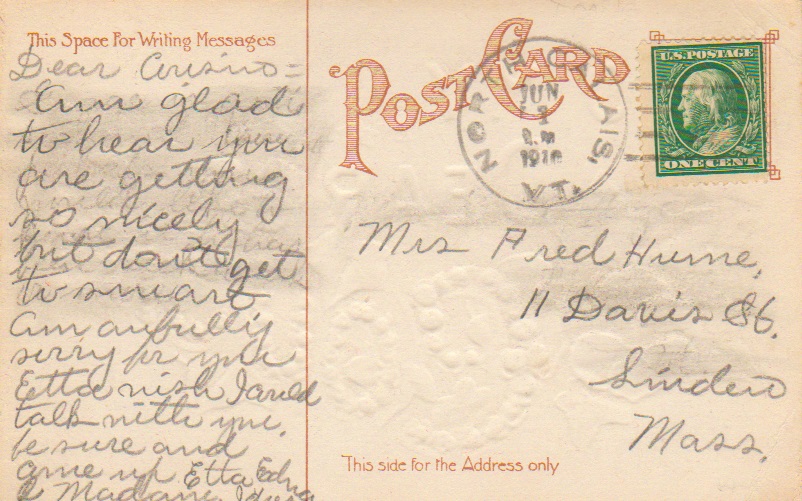 This Space For Writing Messages
Dear Cousin =
Am glad
to hear you
are getting
so nicely
but don't get
to smart
am awfully
sorry for you
Etta wish I could
talk with you.
be sure and
come up Etta Edna
& Madam
POST CARD
NORTH CALAIS, VT.
JUN
1910
U.S. POSTAGE
ONE CENT
Mrs Fred Hume,
11 Davis St.
Linden
Mass.
This side for the Address only